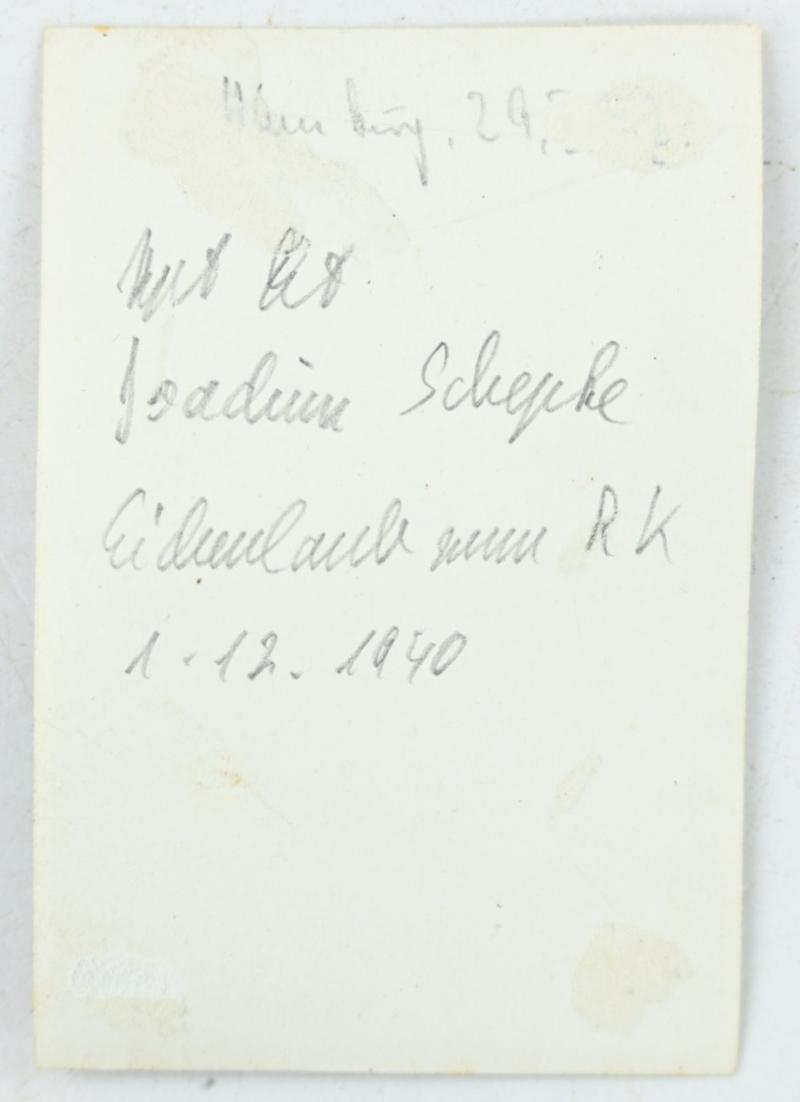 Hamburg, 29.
Kpt Lt
Joachim Schepke
Eichenlaub zum RK
1.12.1940